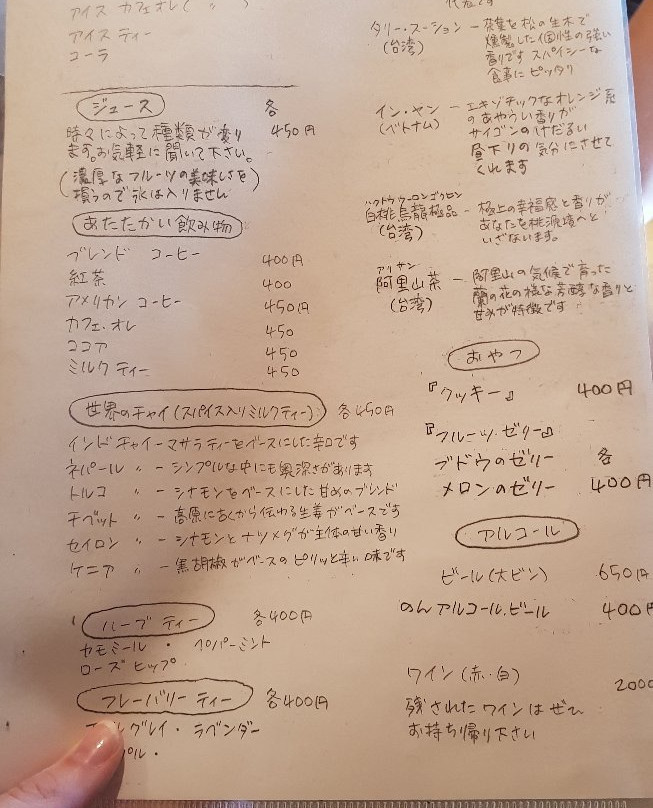 アイス カフェオレ( 〃 )
アイス ティー
コーラ
ジュース 各
時々によって種類が変り 450円
ます。お気軽に聞いて下さい。
(濃厚なフルーツの美味しさを
損うので氷は入りません)
あたたかい飲み物
ブレンド コーヒー 400円
紅茶 400
アメリカン コーヒー 450円
カフェ・オレ 450
ココア 450
ミルク ティー 450
世界のチャイ(スパイス入りミルクティー) 各450円
インド チャイーマサラティーをベースにした辛口です
ネパール 〃 ーシンプルな中にも奥深さがあります
トルコ 〃 ーシナモンをベースにした甘めのブレンド
チベット 〃 ー高原に古くから伝わる生姜がベースです
セイロン 〃 ーシナモンとナツメグが主体の甘い香り
ケニア 〃 ー黒胡椒がベースのピリッと辛い味です
ハーブ ティー 各400円
カモミール ・ ペパーミント
ローズ ヒップ
フレーバリー ティー 各400円
グレイ・ラベンダー
プル・
タリー・スーション ー茶葉を松の生木で
(台湾) 燻製した個性の強い
香りです スパイシーな
食事に ピッタリ
イン・ヤン ーエキゾチックなオレンジ系
(ベトナム) のあやうい香りが
サイゴンのけだるい
昼下りの気分にさせて
くれます
白桃烏龍極品 ー極上の幸福感と香りが
(台湾) あなたを桃源境へと
いざないます。
アリサン
阿里山茶 ー阿里山の気候で育った
(台湾) 蘭の花の様な芳醇な香りと
甘みが特徴です
おやつ
『クッキー』 400円
『フルーツ・ゼリー』
ブドウのゼリー 各
メロンのゼリー 400円
アルコール
ビール(大ビン) 650円
のんアルコール・ビール 400円
ワイン(赤・白) 2000
残されたワインはぜひ
お持ち帰り下さい